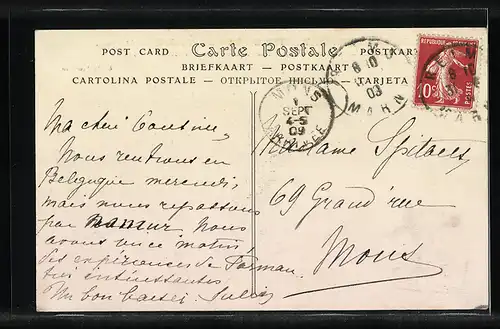 POST CARD Carte Postale POSTKARTE
BRIEFKAART — POSTKAART
CARTOLINA POSTALE — ОТКРЫТОЕ TARJETA
10c POSTES
MONS
1
SEPT
4-5
09
8 10
03
MARN
Ma chère Cousine,
Nous rentrons en
Belgique mercredi,
mais nous repassons
par Namur. Nous
avons vu ce matin
des expériences de Farman
très intéressantes.
Un bon baiser. Julia
Madame Spitaels
69 Grand'rue
Mons